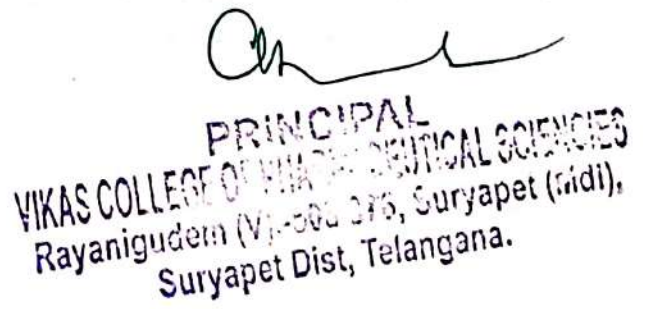 PRINCIPAL
VIKAS COLLEGE OF PHARMACEUTICAL SCIENCIES
Rayanigudem (V).- 376, Suryapet (Mdl),
Suryapet Dist, Telangana.